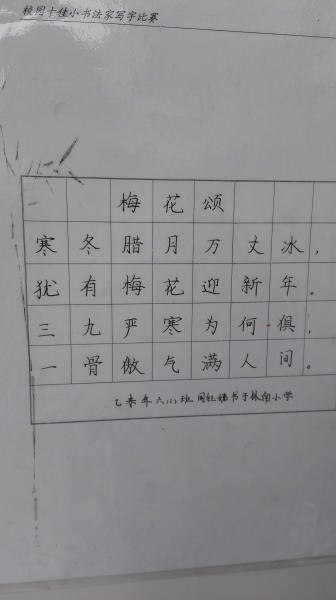 校园十佳小书法家写字比赛
梅花颂
寒冬腊月万丈冰，
犹有梅花迎新年。
三九严寒为何惧，
一骨傲气满人间。
乙未年六(1)班周 书于林南小学